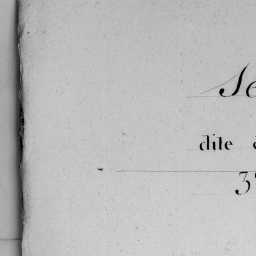 Se
dite
3